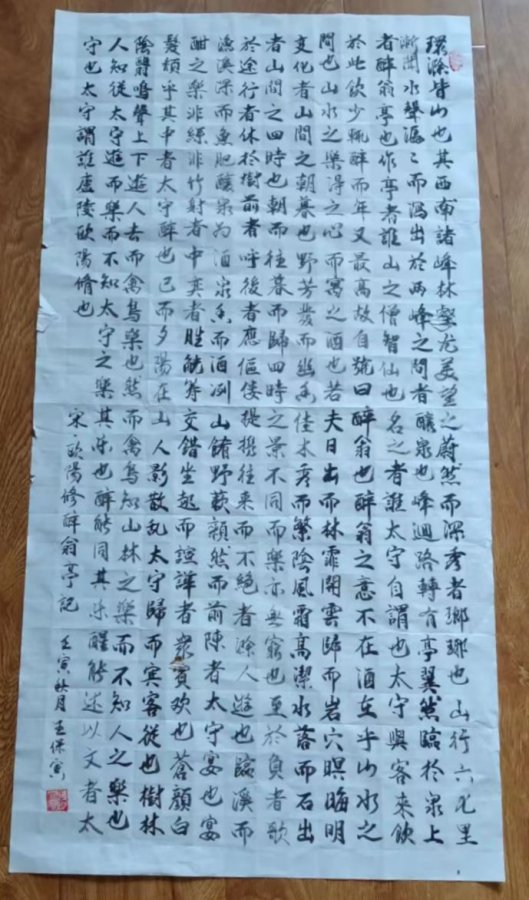 環滁皆山也其西南諸峰林壑尤美望之蔚然而深秀者瑯琊也山行六七里
漸聞水聲潺々而瀉出於兩峰之間者釀泉也峰迴路轉有亭翼然臨於泉上
者醉翁亭也作亭者誰山之僧智仙也名之者誰太守自謂也太守與客來飲
於此飲少輒醉而年又最高故自號曰醉翁也醉翁之意不在酒在乎山水之
間也山水之樂得之心而寓之酒也若夫日出而林霏開雲歸而岩穴暝晦明
变化者山間之朝暮也野芳發而幽香佳木秀而繁陰風霜高潔水落而石出
者山間之四時也朝而往暮而歸四時之景不同而樂亦無窮也至於負者歌
於途行者休於樹前者呼後者應傴僂提攜往來而不絕者滁人遊也臨溪而
漁溪深而魚肥釀泉為酒泉香而酒洌山餚野蔌然而前陳者太守宴也宴
酣之樂非絲非竹射者中奕者勝觥籌交錯坐起而諠譁者眾賓欢也蒼顏白
髮頹乎其中者太守醉也已而夕陽在山人影散亂太守歸而賓客從也樹林
陰翳鳴聲上下遊人去而禽鳥樂也然而禽鳥知山林之樂而不知人之樂也
人知從太守遊而樂而不知太守之樂其乐也醉能同其乐醒能述以文者太
守也太守謂誰廬陵歐陽脩也
宋歐陽修醉翁亭記 壬寅秋月王保寫